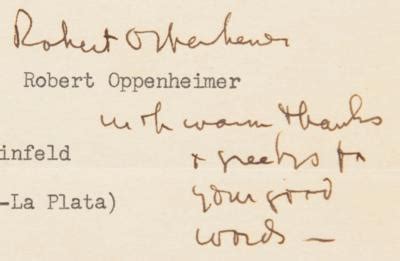 Robert Oppenheimer
Robert Oppenheimer
with warm thanks
infeld
+ greetings for
-La Plata)
your good
words —